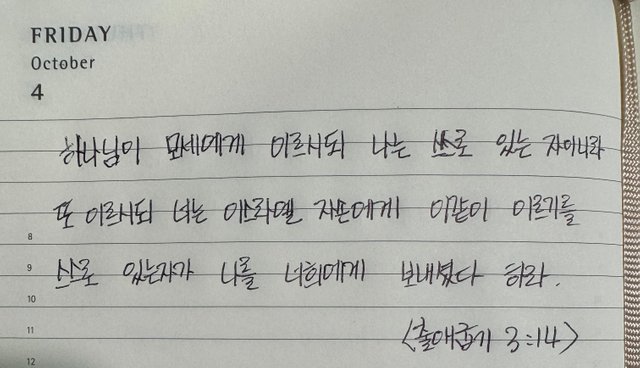 FRIDAY
October
4
하나님이 모세에게 이르시되 나는 스스로 있는 자이니라
또 이르시되 너는 이스라엘 자손에게 이같이 이르기를
8
스스로 있는자가 나를 너희에게 보내셨다 하라.
9
10
<출애굽기 3:14>
11
12